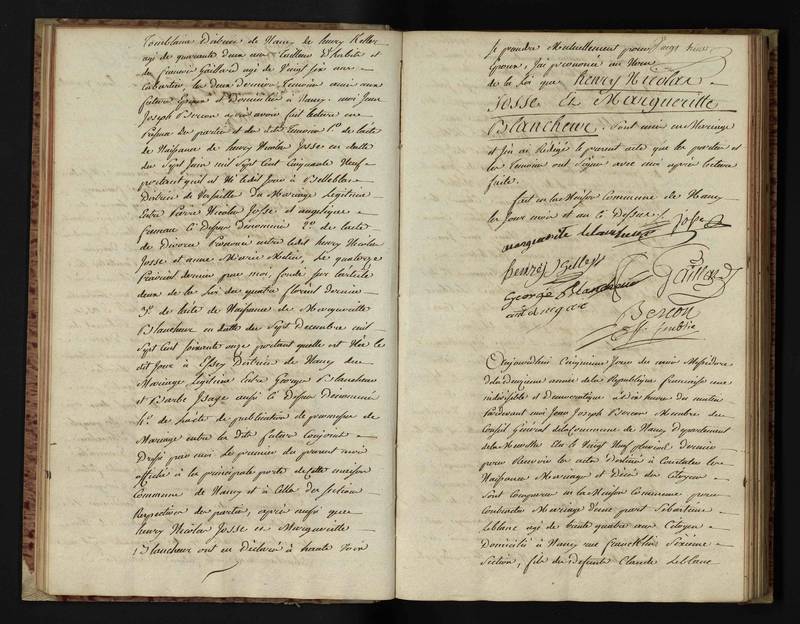 Tomblaine District de Nancy de henry Keller
agé de quarante deux ans Tailleur d'habits et
de francois Gaillard agé de Vingt six ans
Cabartier les deux dernier Temoins amis aux
futurs Epoux et Domiciliés à Nancy. moi Jean
Joseph Berson après avoir fait lecture en
Présence des parties et des dits temoins 1.º de l'acte
de Naissance de henry Nicolas Josse en datte
du Sept Juin mil Sept Cent Cinquante Neuf
portant qu'il est Né le dit Jour à
District de Versaille Du Mariage Légitime
Entre Pierre Nicolas Josse et angelique
ci Dessus Denommée 2.º de l'acte
de Divorce Prononcé entre ledit henry Nicolas
Josse et anne Marie le quatorze
Prairial dernier par moi, fondé sur l'article
deux de la Loi du quatre floreal dernier
3.º de l'acte de Naissance de Marguerite
Blancheur en datte du Sept Decembre mil
Sept Cent Soixante onze portant quelle est Née le
dit Jour à Essey District de Nancy du
Mariage Légitime entre Georges Blancheur
et Barbe aussi ci Dessus Denommés
4.º de l'acte de publication de promesse de
Mariage entre les dits futurs Conjoints
Dressé par moi le premier du présent mois
affiché à la principale porte de Cette maison
Commune de Nancy et à Celle des Section
Respectives des parties, après aussi que
henry Nicolas Josse et Marguerite
Blancheur ont eu déclaré à haute Voix
Se prendre Mutuellement pour
Epoux, J'ai prononcé au Nom
de la Loi que henry Nicolas
Josse et Marguerite
Blancheur, Sont unis en Mariage
et j'en ai Rédigé le présent acte que les parties et
les Temoins ont Signé avec moi après lecture
faite.
fait en la Maison Commune de Nancy
les Jour mois et an ci Dessus.
marguerite Josse
henry Keller Gaillard
George Blancheur
Berson
Off. Public
Aujourdhui Cinquieme Jour du mois Messidore
de la Deuzieme année de la République françaises une
indivisible et Democratique à dix heures du matin
Pardevant moi Jean Joseph Berson Membre du
Conseil Général de la Commune de Nancy Departement
de la Meurthe Elu le Vingt Neuf pluviose dernier
pour Recevoir les actes destinés à Constater les
Naissance Mariage et Décès des Citoyens
Sont Comparus en la Maison Commune pour
Contracter Mariage d'une part Sébastien
Leblanc agé de trente quatre ans Citoyen
Domicilié à Nancy rue francklin Sixieme
Section, fils des Defunts Claude Leblanc